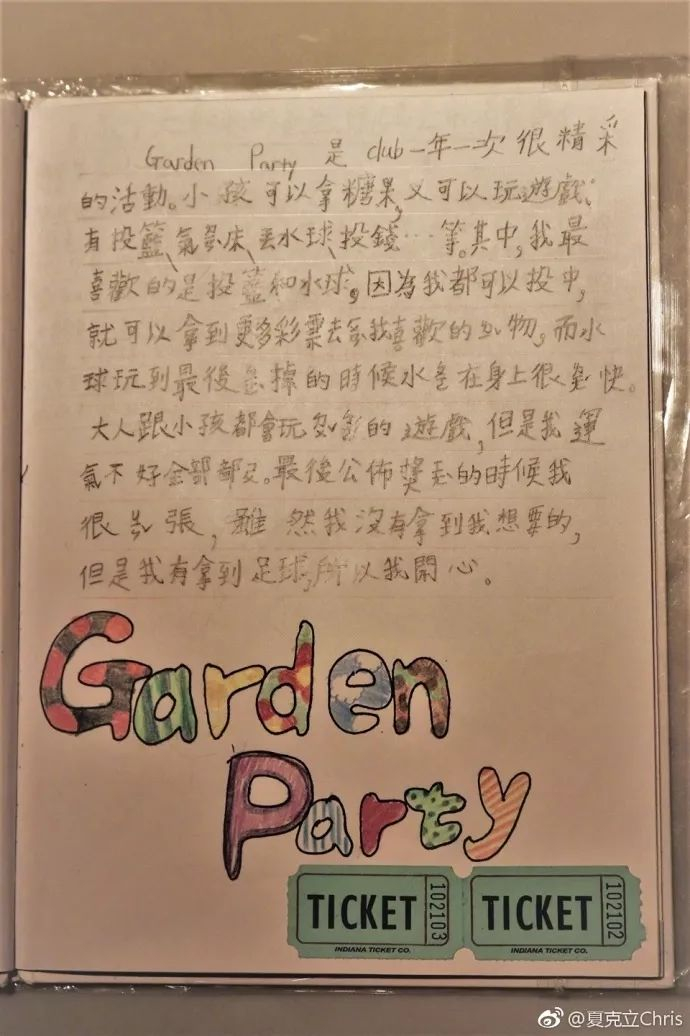 Garden Party 是 club 一年一次很精采
的活動。小孩可以拿糖果,又可以玩遊戲:
有投籃、氣墊床、丟水球、投錢…等。其中,我最
喜歡的是投籃和水球。因為我都可以投中,
就可以拿到更多彩票去 我喜歡的 物。而水
球玩到最後 掉的時候水 在身上很 快。
大人跟小孩都會玩 的遊戲,但是我運
氣不好全部都 。最後公佈獎 的時候我
很 張,雖然我沒有拿到我想要的,
但是我有拿到足球,所以我開心。
Garden
Party
TICKET 102103 TICKET 102102
INDIANA TICKET CO. INDIANA TICKET CO.
@夏克立Chris